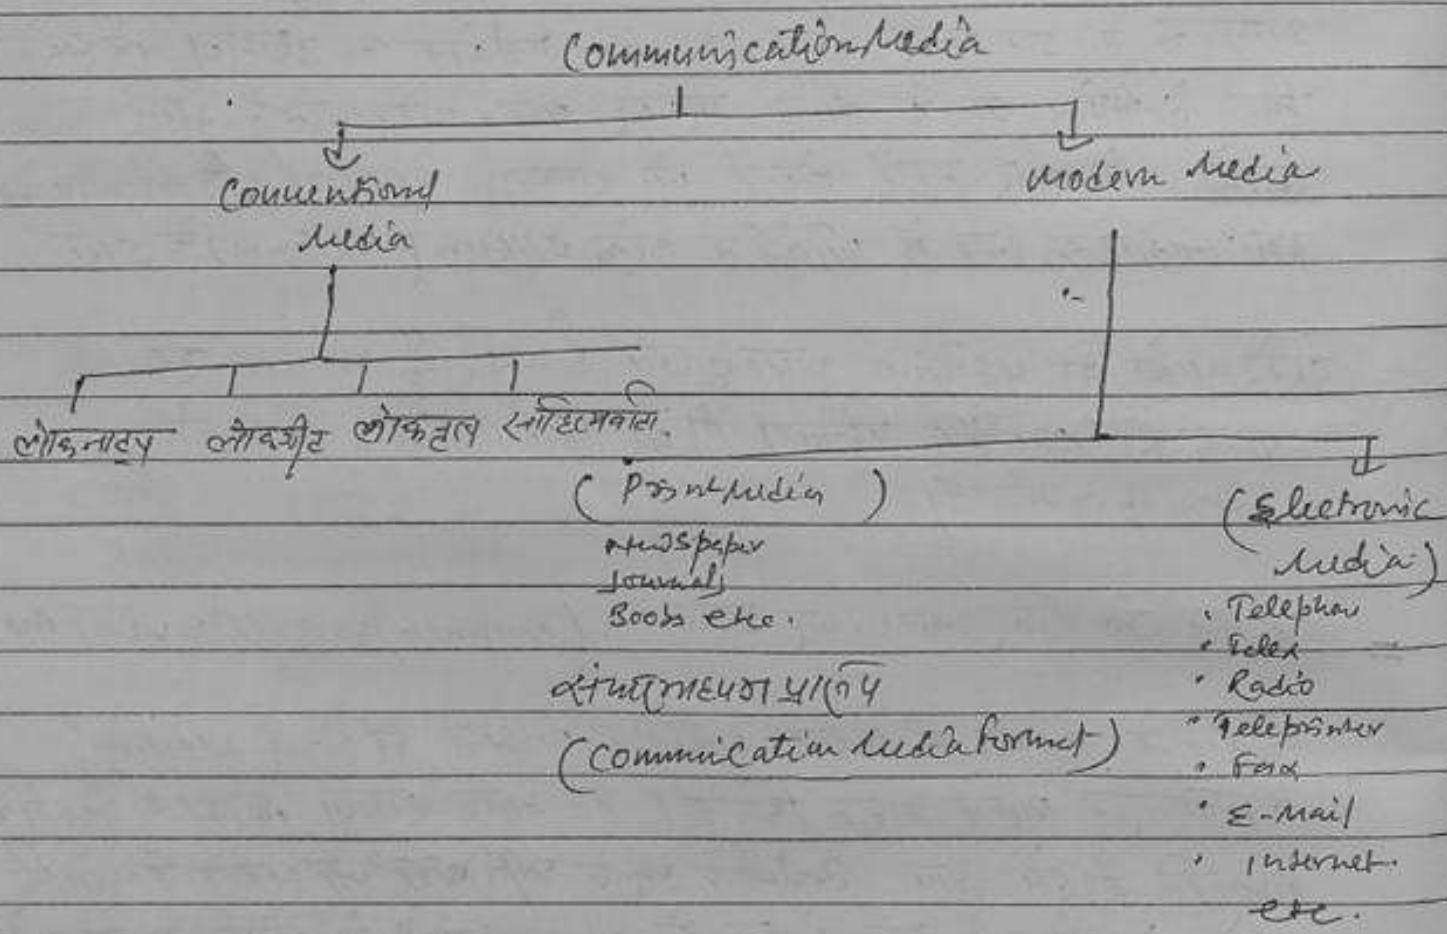 Communication Media
Conventional
Media
Modern Media
लोकनाट्य लोकगीत लोकनृत्य
(Print Media)
Newspaper
Journals
Books etc.
(Electronic
Media)
• Telephon
• Telex
• Radio
• Teleprinter
• Fax
• E-Mail
• Internet.
etc.
संचार माध्यम प्रारूप
(Communication Media Format)